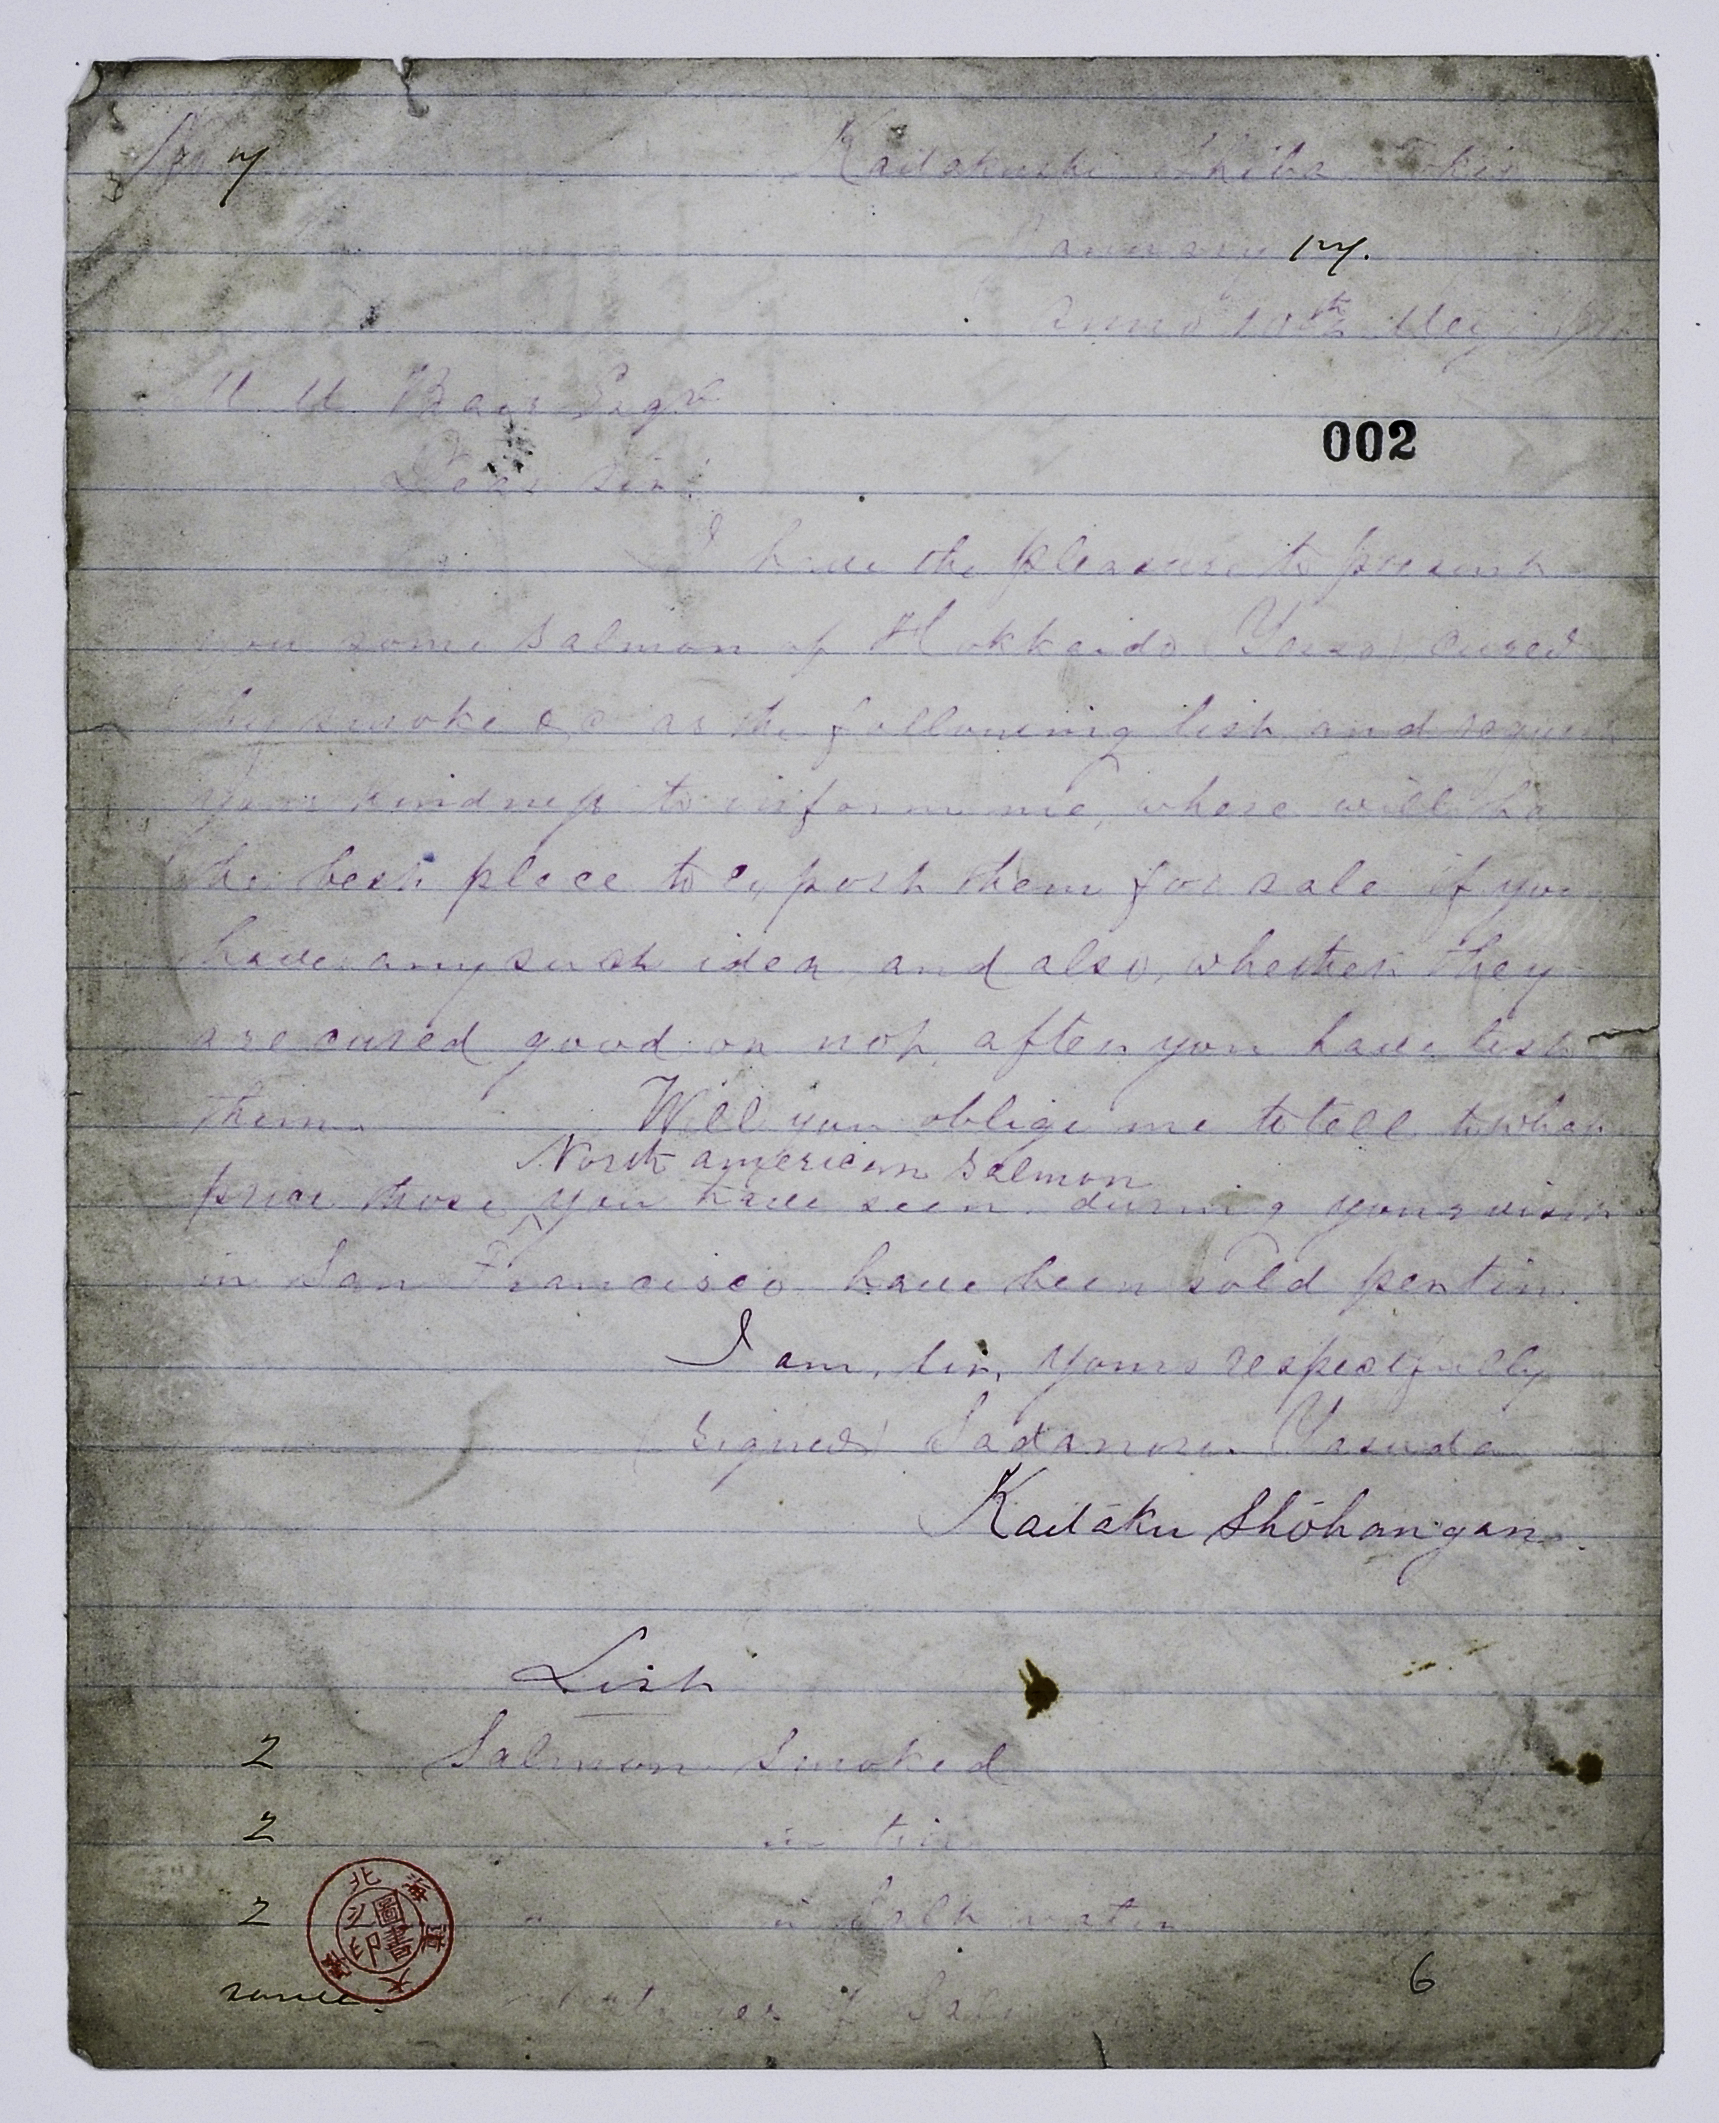 No 7 Kaitakushi Shiba Tokio
January 17.
Anno 10th Meiji
M. M. Bair Esqr
002
Dear Sir!
I have the pleasure to present
you some Salmon of Hokkaido (Yesso) cured
by smoke &c as the following list, and request
your kindness to inform me, where will be
the best place to exposit them for sale if you
have any such idea, and also, whether they
are cured good or not, after you have test
them. Will you oblige me to tell to what
North american Salmon
price those you have seen during your visit
in San Francisco have been sold per tin.
I am, Sir, yours respectfully
(Signed) Sadanori Yasuda
Kaitaku Shōhangan.
List
2 Salmon Smoked
2 in tin
2 " in Salt water
some. of
6
北海道大學
圖書之印